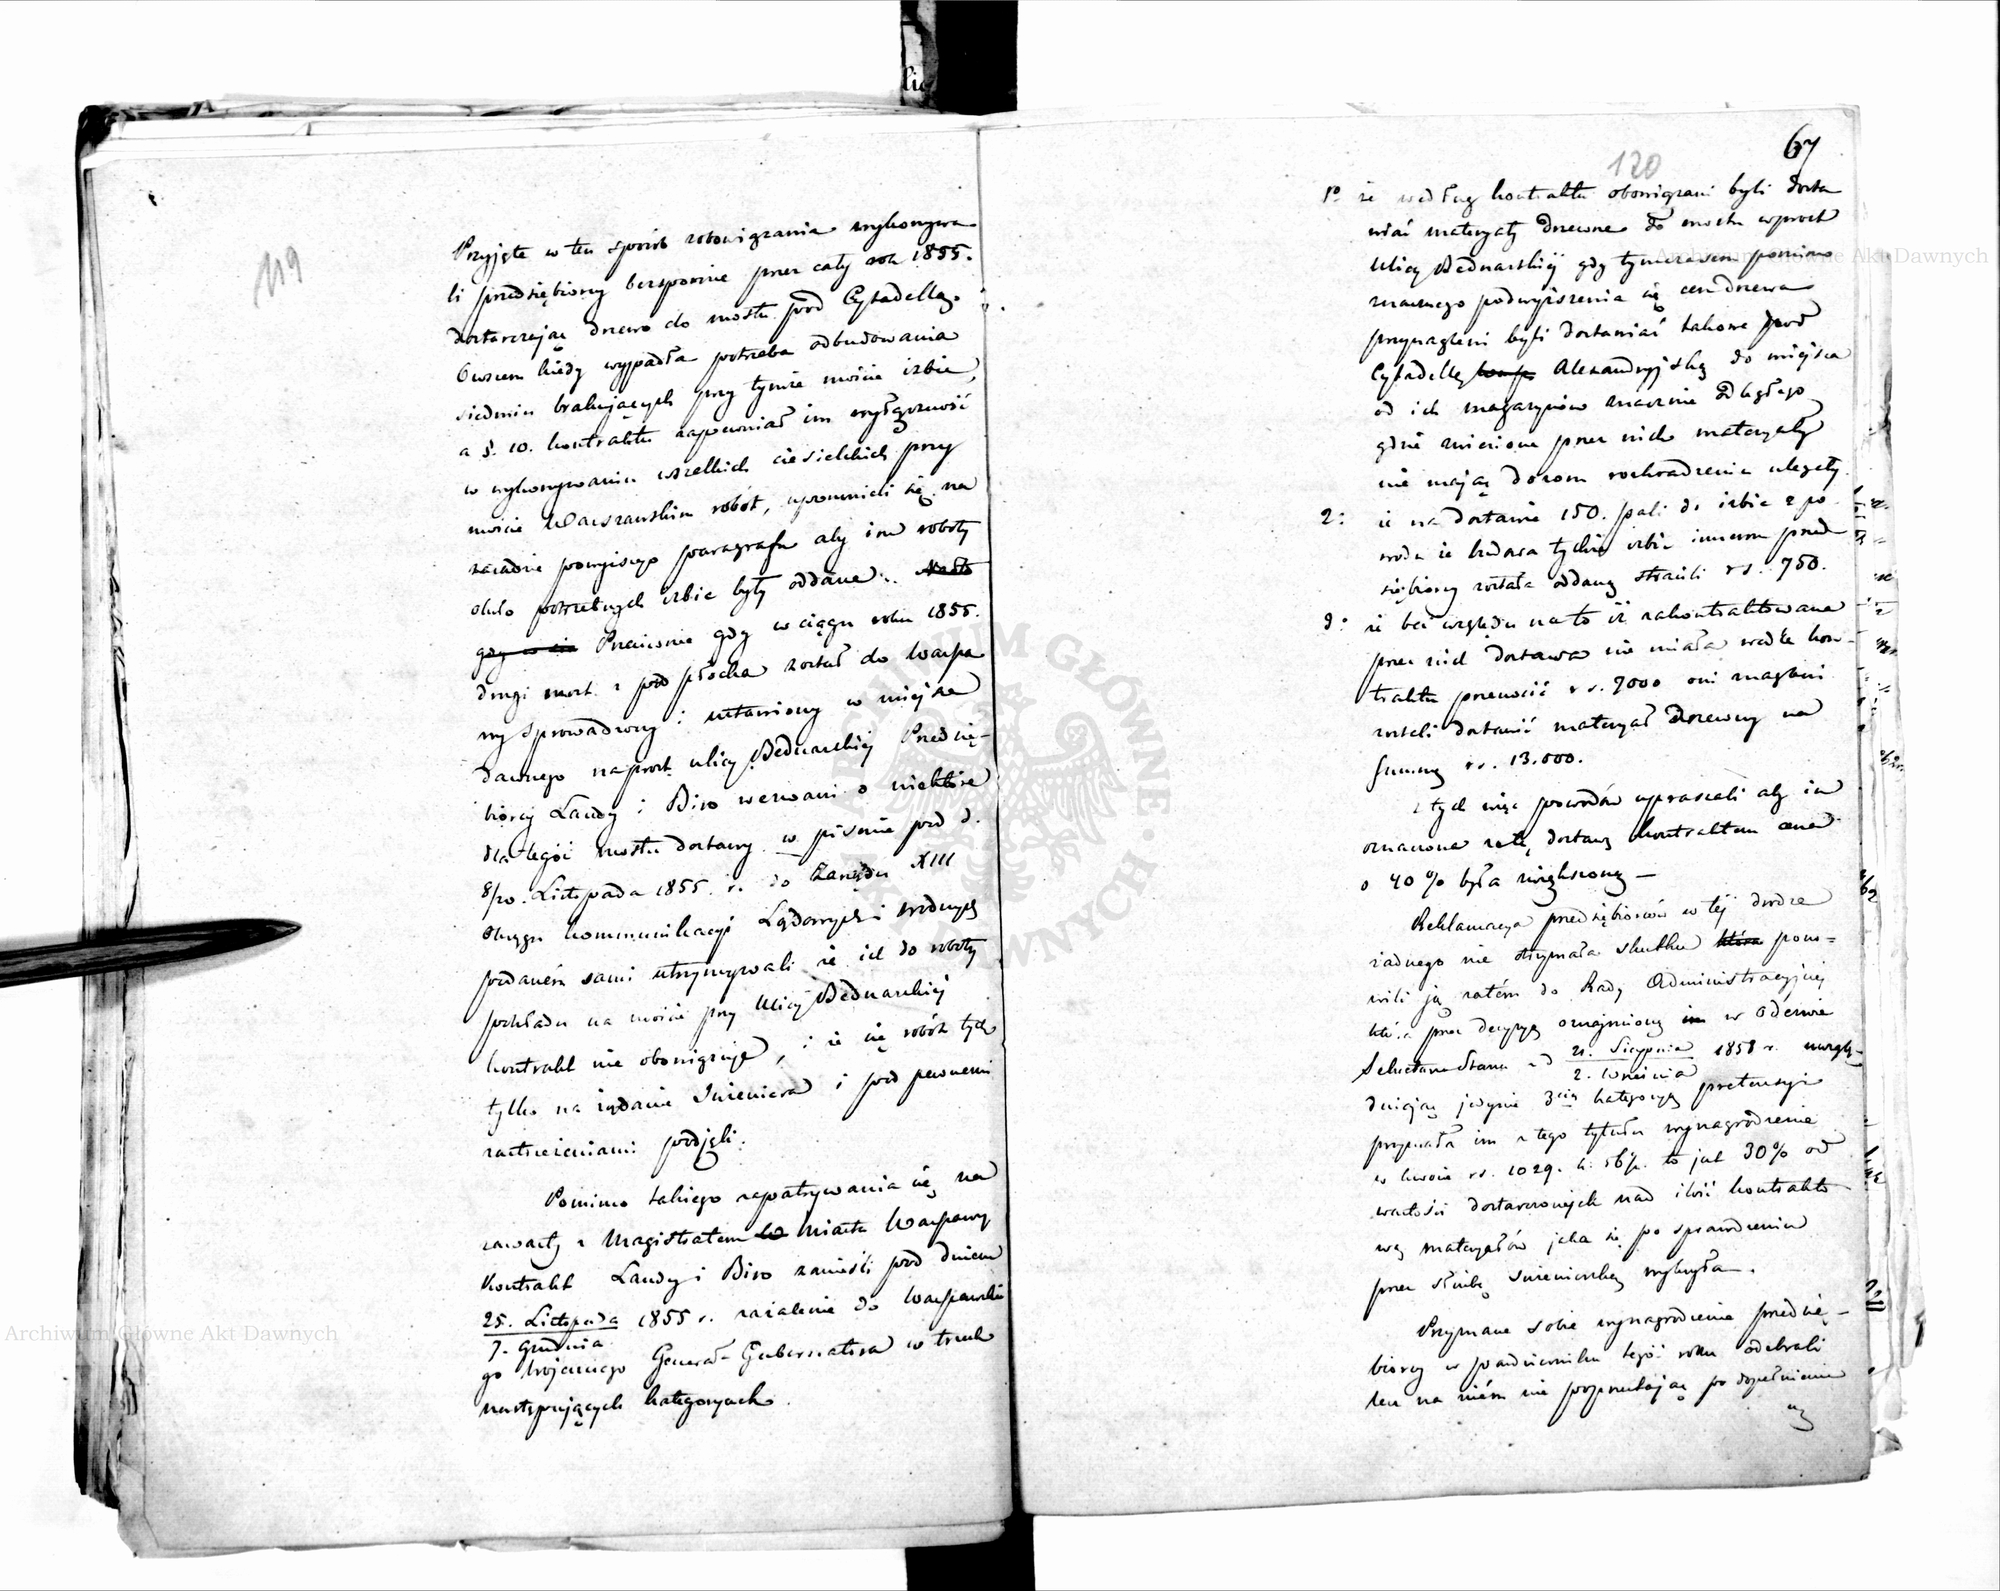 119
Przyjęte w ten sposób zobowiązania wykonywa
li przedsiębiorcy bezspornie przez cały rok 1855.
dostarczając drzewo do mostu pod Cytadellą.
Owszem kiedy wypadła potrzeba odbudowania
siedmiu brakujących przy tymże moście izbic,
a §. 10. kontraktu zapewniał im wyłączność
w wykonywaniu wszelkich ciesielskich przy
moście Warszawskim robót, upomnieli się na
zasadzie powyższego paragrafu aby im roboty
około potrzebnych izbic były oddane.
Przeciwnie gdy w ciągu roku 1855.
drugi most z pod Płocka został do Warsza
wy sprowadzony i ustawiony w miejscu
dawnego naprost ulicy Bednarskiej Przedsię-
biorcy Landy i Biro wezwani o niektóre
dla tegoż mostu dostawy w piśmie pod d.
8/20. Listopada 1855. r. do Zarządu XIII
Okręgu Kommunikacyi Lądowych i wodnych
podaném sami utrzymywali że ich do roboty
pokładu na moście przy Ulicy Bednarskiej
kontrakt nie obowiązuje, i że się robót tych
tylko na żądanie Inżeniera i pod pewnemi
zastrzeżeniami podjęli.
Pomimo takiego zapatrywania się na
zawarty z Magistratem Miasta Warszawy
Kontrakt Landy i Biro zanieśli pod dniem
25. Listopada 1855 r. zażalenie do Warszawskie
7. Grudnia
go Wojennego Generał-Gubernatora w trzech
następujących kategoryach.
67
120
1º że według kontraktu obowiązani byli dosta
wiać materyały drzewne do mostu wprost
Ulicy Bednarskiej gdy tymczasem pomimo
znacznego podwyższenia się cen drzewa
przynagleni byli dostawiać takowe pod
Cytadellę Alexandryjską do miejsca
od ich magazynów znacznie odległego
gdzie zwiezione przez nich materyały
nie mając dozoru rozkradzeniu ulegały.
2: że na dostawie 150. pali do izbic z po
wodu że budowa tychże izbic innemu przed
siębiorcy została oddaną stracili rs. 750.
3: że bez względu na to iż zakontraktowana
przez nich dostawa nie miała wedle kon-
traktu przenosić rs. 7000 oni nagleni
zostali dostawić materyał drzewny na
Summę rs. 13.000.
Z tych więc powodów upraszali aby im
oznaczona za tę dostawę kontraktem cena
o 40 % była zwiększoną —
Reklamacya przedsiębiorców w tej drodze
żadnego nie otrzymała skutku pono=
wili ją zatém do Rady Administracyjnej
która przez decyzyę oznajmioną w Odezwie
Sekretarza Stanu z d 21. Sierpnia 1858 r. uwzglę-
2. Września
dniając jedynie 3cią kategoryę pretensyi
przyznała im z tego tytułu wynagrodzenie
w kwocie rs. 1029. k. 56½. to jest 30% od
wartości dostarczonych nad ilość kontrakto
wą materyałów jaka się po sprawdzeniu
przez służbę inżenierską wykryła.
Przyznane sobie wynagrodzenie przedsię-
biorcy w październiku tegoż roku odebrali
lecz na niém nie poprzestając po dopełnieniu